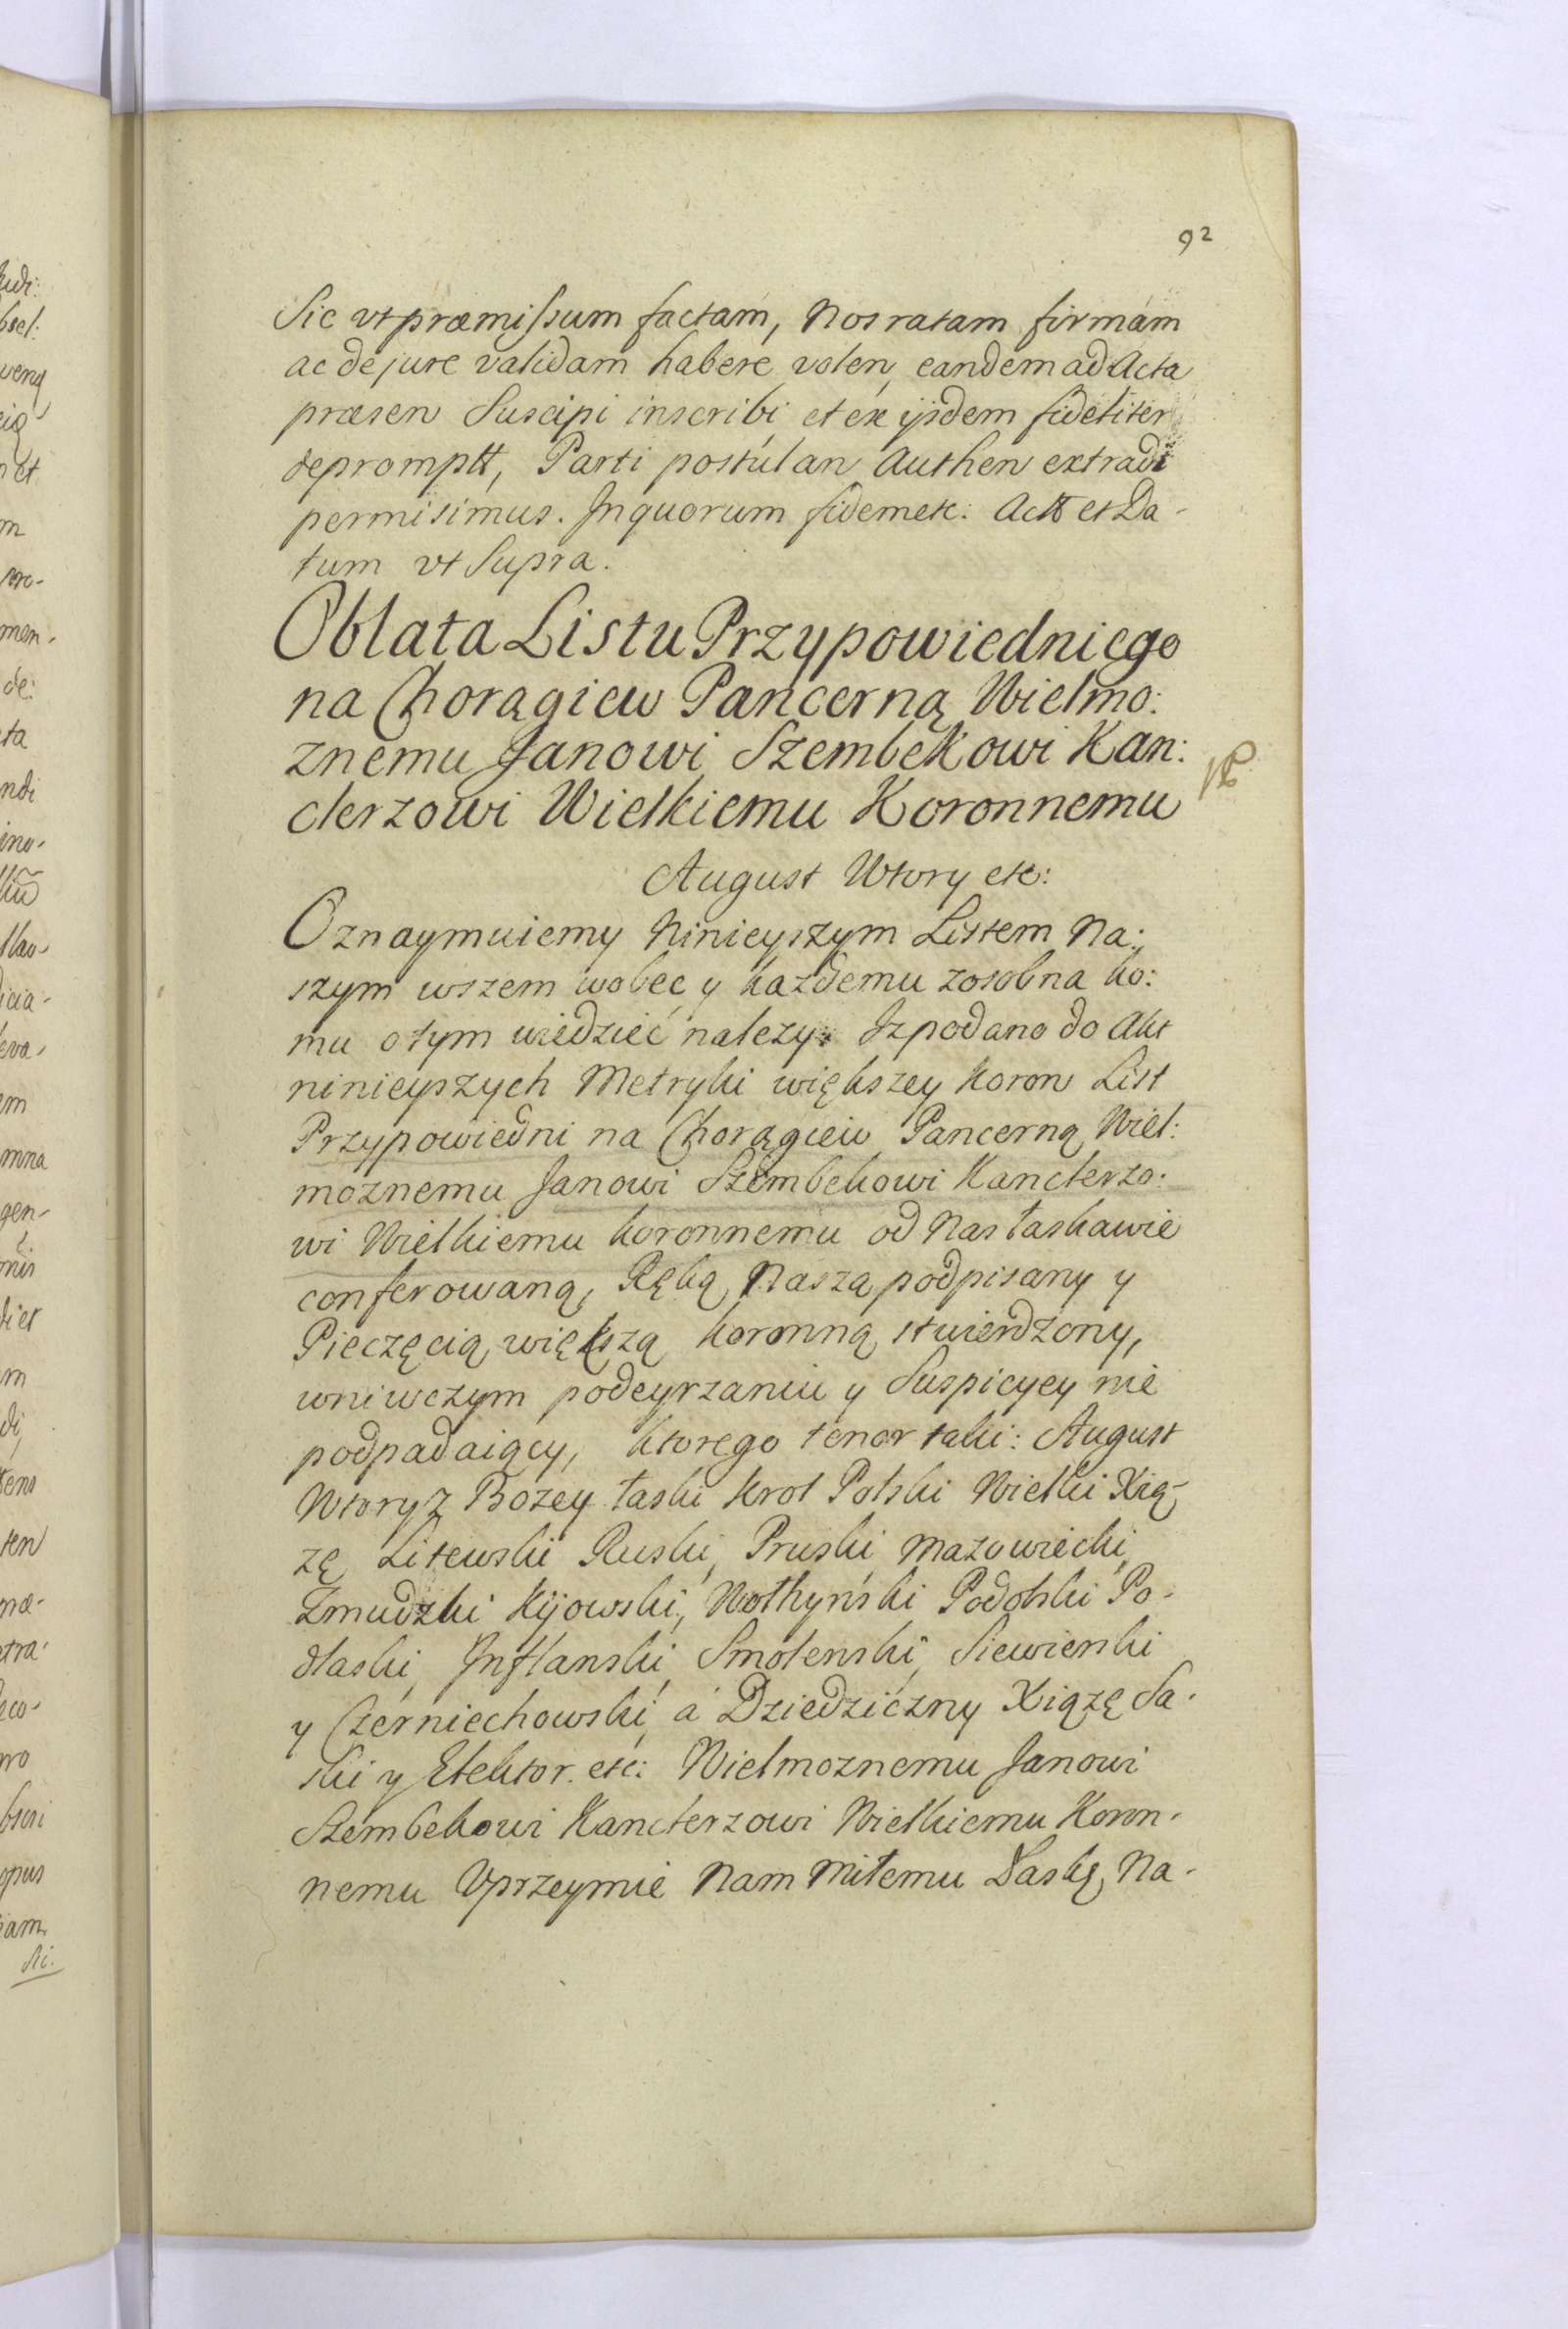 92
Sic vt præmissum factam, Nos ratam firmam
ac de jure validam habere volen, eandem ad Acta
præsen Suscipi inscribi et ex ijsdem fideliter
depromptt, Parti postulan Authen extradi
permisimus. In quorum fidem etc: Actt et Da-
tum vt Supra.
Oblata Listu Przypowiedniego
na Chorągiew Pancerną Wielmo:
znemu Janowi Szembekowi Kan:
clerzowi Wielkiemu Koronnemu
August Wtory etc:
Oznaymuiemy Ninieyszym Listem Na:
szym wszem wobec y kazdemu zosobna ko:
mu o tym wiedzieć nalezy. Iz podano do Akt
ninieyszych Metryki większey Koron List
Przypowiedni na Chorągiew Pancerną Wiel:
moznemu Janowi Szembekowi Kanclerzo:
wi Wielkiemu koronnemu od Nas łaskawie
conferowaną, Ręką Naszą podpisany y
Pieczęcią większą koronną stwierdzony,
wniwczym podeyrzaniu y Suspicyey nie
podpadaiący, ktorego tenor taki: August
Wtory z Bozey łaski Krol Polski Wielki Xią-
zę Litewski Ruski, Pruski, Mazowiecki,
Zmudzki Kijowski, Wołhyński Podolski Po-
dlaski, Inflanski, Smolenski, Siewierski
y Czerniechowski, a Dziedziczny Xiązę Sa-
ski y Elektor. etc: Wielmoznemu Janowi
Szembekowi Kanclerzowi Wielkiemu Koron-
nemu Vprzeymie Nam Miłemu Łaskę Na-